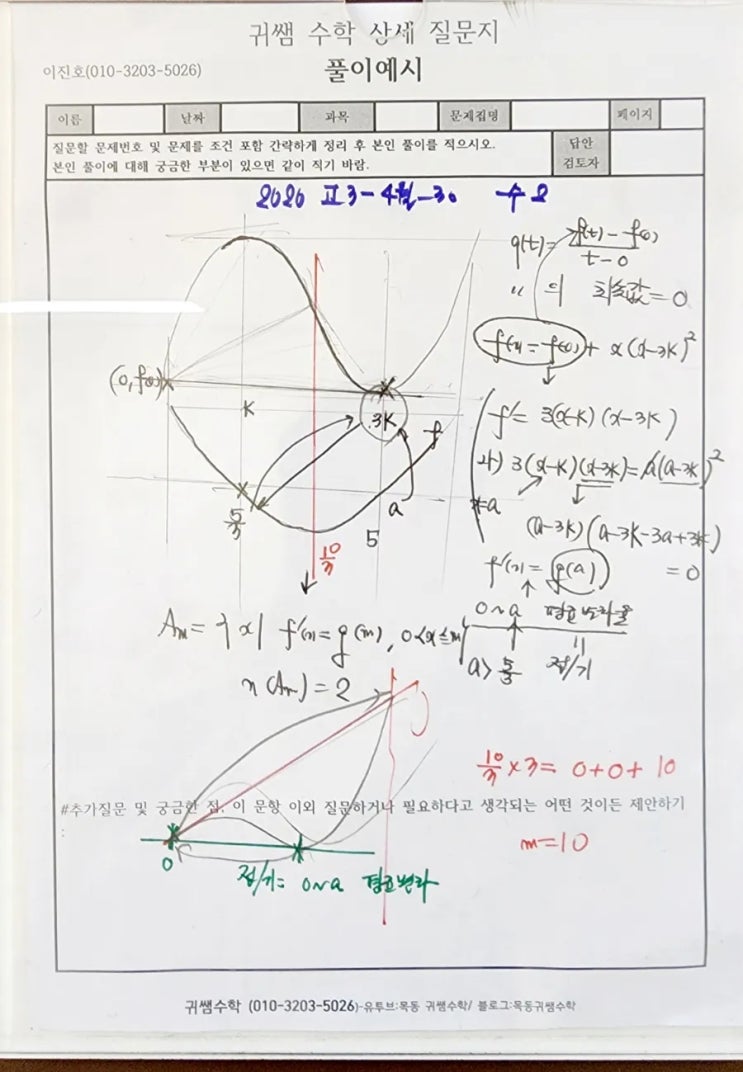 귀쌤 수학 상세 질문지
이진호(010-3203-5026)
풀이예시
이름 날짜 과목 문제집명 페이지
질문할 문제번호 및 문제를 조건 포함 간략하게 정리 후 본인 풀이를 적으시오.
본인 풀이에 대해 궁금한 부분이 있으면 같이 적기 바람.
답안
검토자
2026 고3-4월-30
g(t)= f(t)-f(0) / t-0
〃 의 최솟값=0
f(x)=f(0)+x(x-3K)²
(0, f(0))
K
3K
f
f'= 3(x-K)(x-3K)
3(x-K)(x-3K)=a(a-3K)²
(a-3K)(a-3K-3a+3K)
=0
5/3
10/3
5
a
f'(x)=g(a)
0~a 평균변화율
a>
접/기
Aₘ={x| f'(x)=g(m), 0<x≤m}
n(Aₘ)=2
10/3×3=0+0+10
#추가질문 및 궁금한 점, 이 문항 이외 질문하거나 필요하다고 생각되는 어떤 것이든 제안하기
:
m=10
0
접/기= 0~a 평균변화
귀쌤수학 (010-3203-5026)-유투브:목동 귀쌤수학/ 블로그:목동귀쌤수학